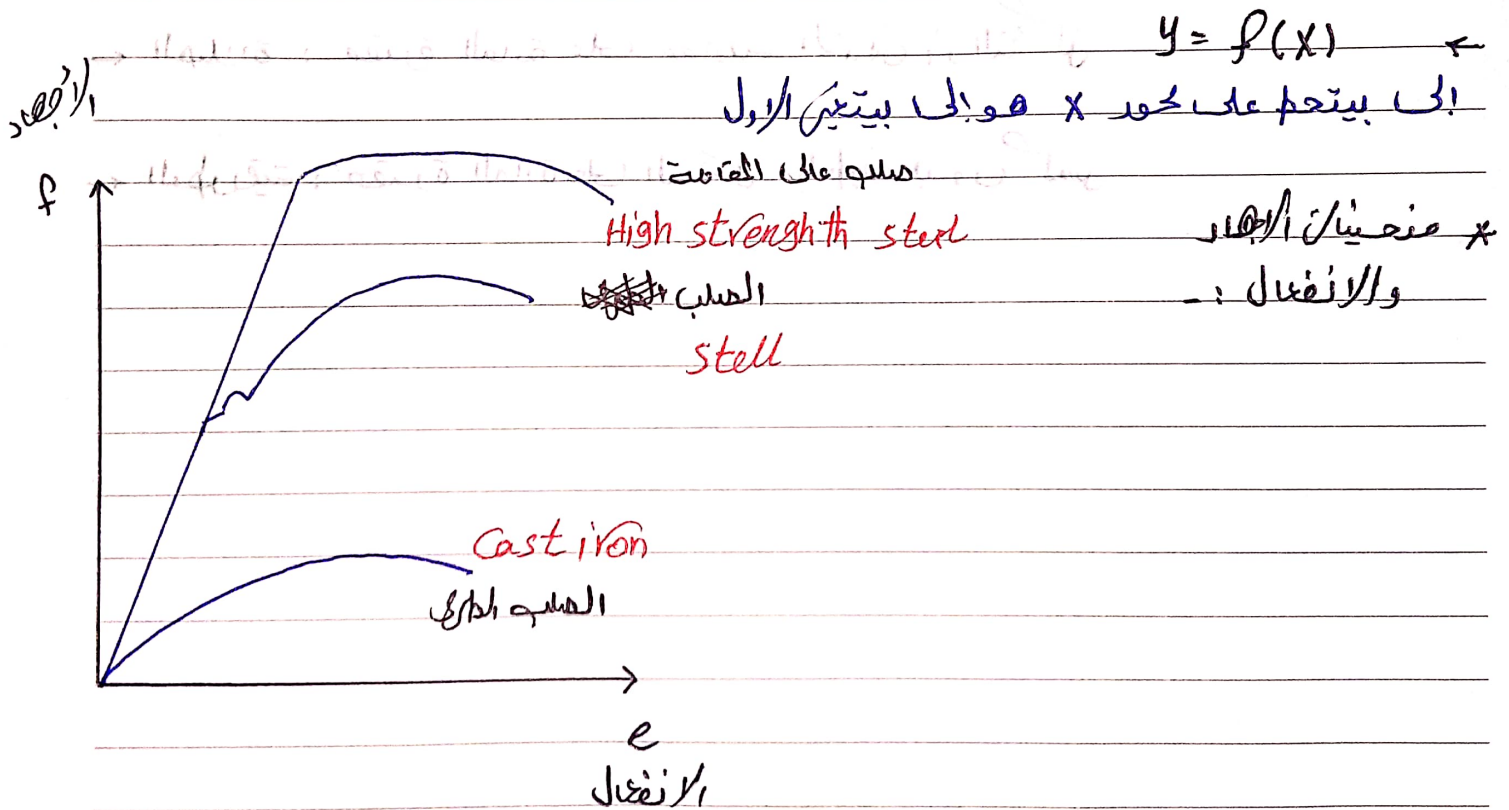 y = f(x) ←
الى بيتحط على محور x هو الى بيتغير الاول
* منحنيات الاجهاد
والانفعال :-
الاجهاد
f
صلب عالى المقاومة
High strenghth steel
الصلب
Stell
Cast iron
الصلب الطرى
e
الانفعال